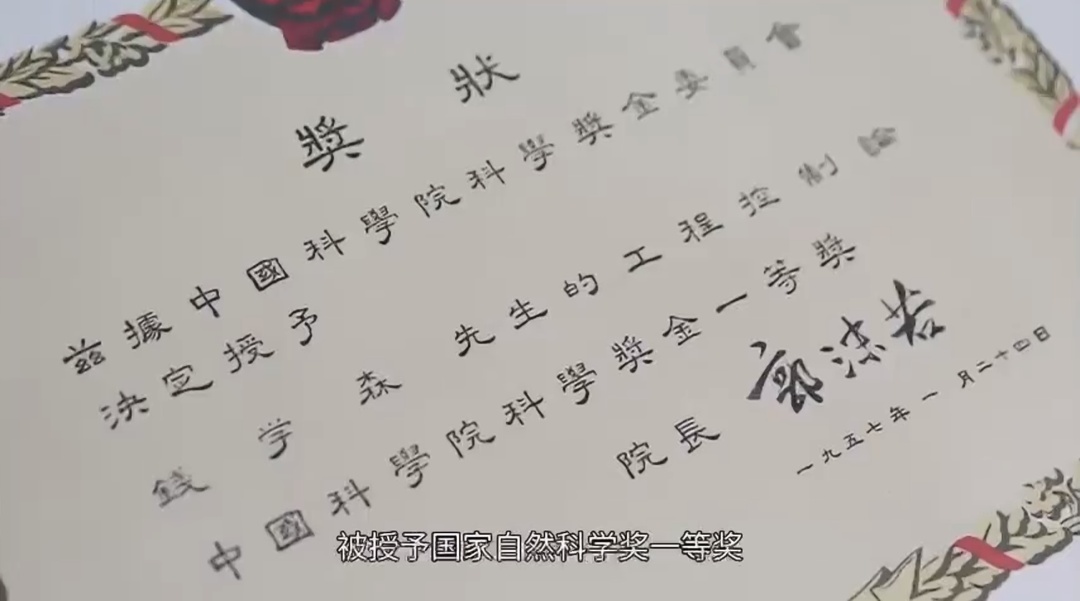 獎狀
茲據中國科學院科學獎金委員會
決定授予
錢学森先生的工程控制論
中國科學院科學獎金一等獎
院長 郭沫若
一九五七年一月二十四日
被授予国家自然科学奖一等奖